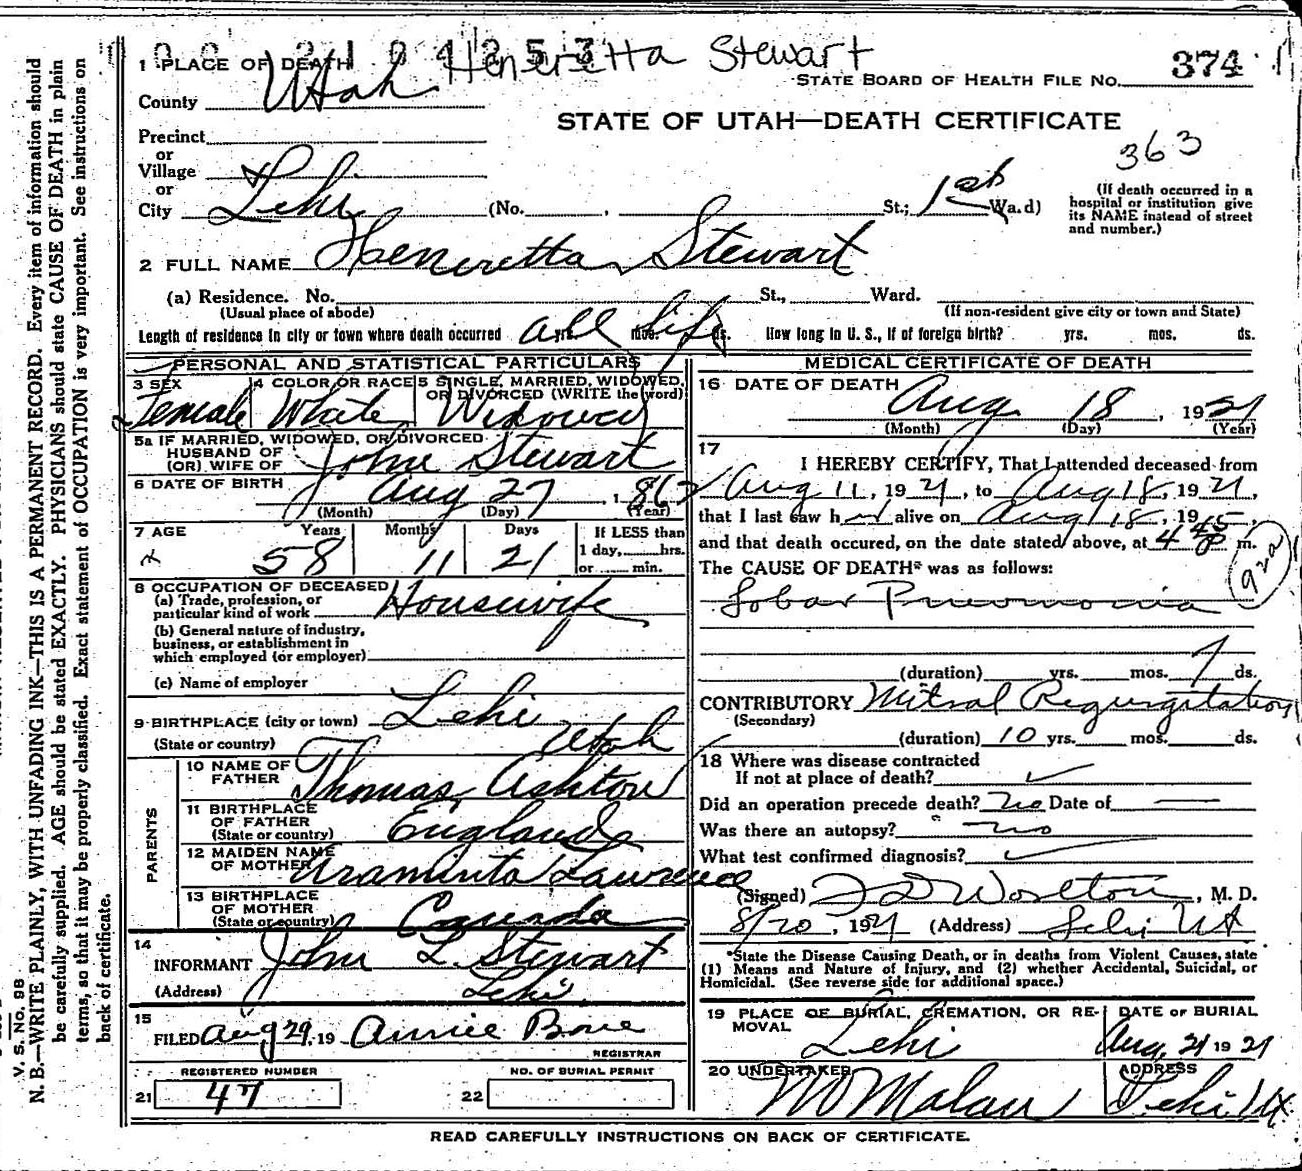 Henerietta Stewart
1 PLACE OF DEATH
STATE BOARD OF HEALTH FILE NO. 374
County Utah
STATE OF UTAH—DEATH CERTIFICATE
Precinct
or
Village
or
City Lehi (No. , St.; 1st Wa.d)
363
(If death occurred in a
hospital or institution give
its NAME instead of street
and number.)
2 FULL NAME Heneretta Stewart
(a) Residence. No. St., Ward.
(Usual place of abode) (If non-resident give city or town and State)
Length of residence in city or town where death occurred all life yrs. mos. ds. How long in U. S., if of foreign birth? yrs. mos. ds.
PERSONAL AND STATISTICAL PARTICULARS
3 SEX 4 COLOR OR RACE 5 SINGLE, MARRIED, WIDOWED,
OR DIVORCED (WRITE the word)
Female White Widowed
5a IF MARRIED, WIDOWED, OR DIVORCED
HUSBAND OF
(OR) WIFE OF John Stewart
6 DATE OF BIRTH Aug 27, 1862
(Month) (Day) (Year)
7 AGE Years Months Days If LESS than
58 11 21 1 day, hrs.
or min.
8 OCCUPATION OF DECEASED
(a) Trade, profession, or
particular kind of work Housewife
(b) General nature of industry,
business, or establishment in
which employed (or employer)
(c) Name of employer
9 BIRTHPLACE (city or town) Lehi
(State or country) Utah
PARENTS
10 NAME OF
FATHER Thomas Ashton
11 BIRTHPLACE
OF FATHER
(State or country) England
12 MAIDEN NAME
OF MOTHER Araminta Lawrence
13 BIRTHPLACE
OF MOTHER
(State or country) Canada
14
INFORMANT John L. Stewart
(Address) Lehi
15
FILED Aug 29, 19 Annie Bone
REGISTRAR
REGISTERED NUMBER NO. OF BURIAL PERMIT
21 47 22
MEDICAL CERTIFICATE OF DEATH
16 DATE OF DEATH
Aug 18, 1921
(Month) (Day) (Year)
17
I HEREBY CERTIFY, That I attended deceased from
Aug 11, 1921, to Aug 18, 1921,
that I last saw her alive on Aug 18, 19
and that death occured, on the date stated above, at 4 45 P m.
The CAUSE OF DEATH* was as follows:
92a
Lobar Pneumonia
(duration) yrs. mos. 7 ds.
CONTRIBUTORY Mitral Regurgitation
(Secondary)
(duration) 10 yrs. mos. ds.
18 Where was disease contracted
If not at place of death?
Did an operation precede death? no Date of
Was there an autopsy? no
What test confirmed diagnosis?
(Signed) Worlton, M. D.
8/20, 1921 (Address) Lehi Ut
*State the Disease Causing Death, or in deaths from Violent Causes, state
(1) Means and Nature of Injury, and (2) whether Accidental, Suicidal, or
Homicidal. (See reverse side for additional space.)
19 PLACE OF BURIAL, CREMATION, OR RE- DATE OF BURIAL
MOVAL
Lehi Aug. 21 1921
20 UNDERTAKER ADDRESS
Malan Lehi Ut.
READ CAREFULLY INSTRUCTIONS ON BACK OF CERTIFICATE.
V. S. NO. 98
N. B.—WRITE PLAINLY, WITH UNFADING INK—THIS IS A PERMANENT RECORD. Every item of information should
be carefully supplied. AGE should be stated EXACTLY. PHYSICIANS should state CAUSE OF DEATH in plain
terms, so that it may be properly classified. Exact statement of OCCUPATION is very important. See instructions on
back of certificate.